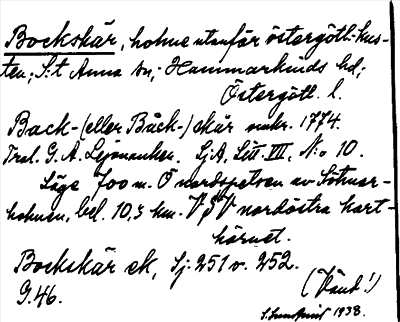 Bockskär, holme utanför östergötl. kus-
ten; S:t Anna sn; Hammarkinds hd;
Östergötl. l.
Back- (eller Båck-) skär nukr. 1774.
Trol. G. A. Lejonanker. Sj.A. Litt. VII, N:o 10.
Läge 700 m. O nordspetsen av
holmen, bel. 10,5 km. VSV nordöstra kart-
hörnet.
Bockskär ek, Sj: 251 v. 252.
G. 46.
(Vänd!)
1938.